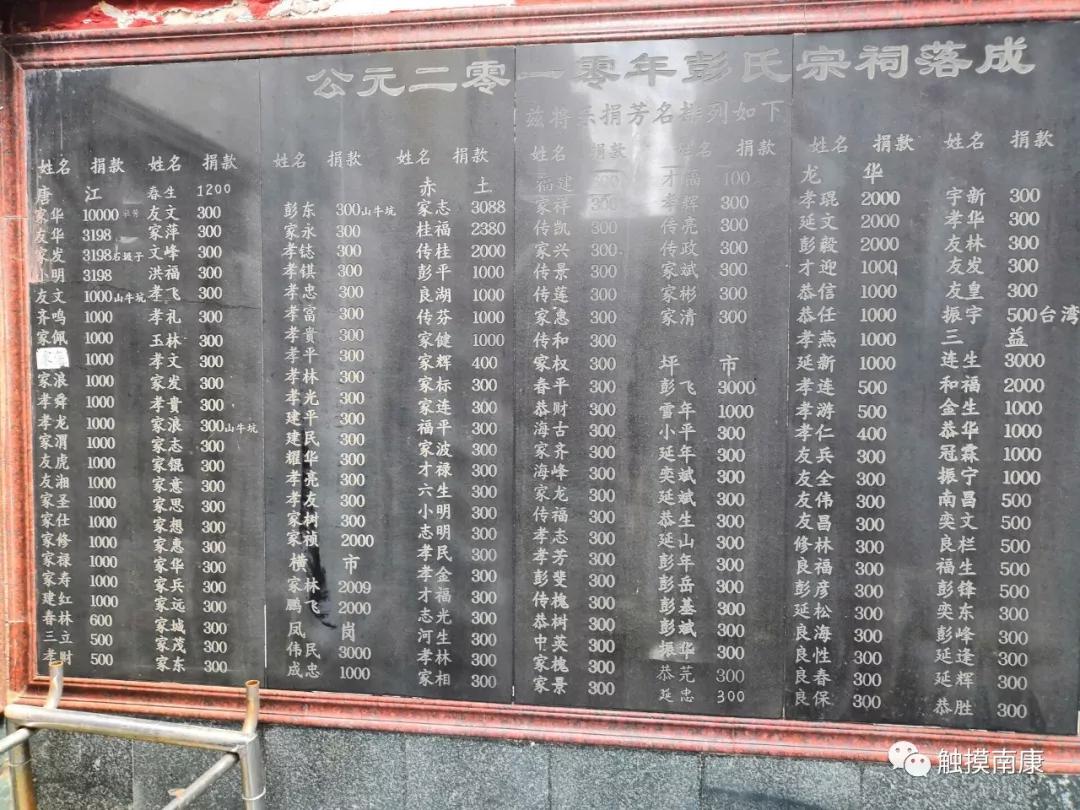 公元二零一零年彭氏宗祠落成
兹将乐捐芳名排列如下
姓名 捐款
唐江
家华 10000
友华 3198
家发 3198石塅子
小明 3198
友文 1000山牛坑
齐鸣 1000
家佩 1000
1000
家浪 1000
孝舜 1000
孝龙 1000
家渭 1000
友虎 1000
友湘 1000
家圣 1000
家仕 1000
家修 1000
家禄 1000
家寿 1000
建红 1000
春林 600
三立 500
孝财 500
姓名 捐款
春生 1200
友文 300
家萍 300
文峰 300
洪福 300
孝飞 300
孝礼 300
玉林 300
孝文 300
家发 300
孝貴 300
家浪 300山牛坑
家志 300
家锟 300
家意 300
家思 300
家想 300
家惠 300
家华 300
家兵 300
家远 300
家城 300
家茂 300
家东 300
姓名 捐款
彭东 300山牛坑
家永 300
孝 300
孝 300
孝忠 300
孝富 300
孝貴 300
孝平 300
孝林 300
孝光 300
建平 300
建民 300
耀华 300
孝亮 300
友 300
家树 300
家祯 2000
横市
家林 2009
鹏飞 2000
凤岗
伟民 3000
成忠 1000
姓名 捐款
赤土
家志 3088
桂福 2380
传桂 2000
彭平 1000
良湖 1000
传芬 1000
家健 1000
家辉 400
家标 300
家连 300
福平 300
家波 300
才禄 300
六生 300
小明 300
志明 300
孝民 300
孝金 300
才福 300
志光 300
河生 300
孝林 300
家相 300
姓名 捐款
福建 300
家祥 300
传凯 300
家兴 300
传景 300
传莲 300
家惠 300
传和 300
家权 300
春平 300
恭财 300
海古 300
家齐 300
海峰 300
家龙 300
传福 300
孝志 300
孝芳 300
彭斐 300
传槐 300
恭树 300
中英 300
家槐 300
家景 300
姓名 捐款
才福 100
孝辉 300
传亮 300
传政 300
家斌 300
家彬 300
家清 300
坪市
彭飞 3000
雪年 1000
小平 300
延年 300
奕斌 300
延斌 300
恭生 300
延山 300
彭年 300
彭岳 300
彭基 300
彭斌 300
振华 300
恭芫 300
延忠 300
姓名 捐款
龙华
孝琨 2000
延文 2000
彭毅 2000
才迎 1000
恭信 1000
恭任 1000
孝燕 1000
延新 1000
孝连 500
孝游 500
孝仁 400
友兵 300
友全 300
友伟 300
友昌 300
修林 300
良福 300
彭彦 300
延松 300
良海 300
良性 300
良春 300
良保 300
姓名 捐款
宇新 300
孝华 300
友林 300
友发 300
友皇 300
振宇 500台湾
三益
连生 3000
和福 2000
金生 1000
恭华 1000
冠霖 1000
振宁 1000
南昌 500
奕文 500
良栏 500
福生 500
彭锋 500
奕东 300
彭峰 300
延逢 300
延辉 300
恭胜 300
触摸南康